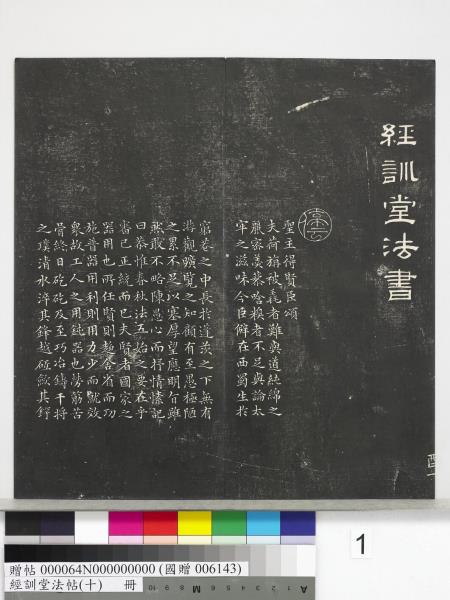 經訓堂法書
聖主得賢臣頌
夫荷旃被毳者難與道純綿之
麗密羹藜唅糗者不足與論太
牢之滋味今臣僻在西蜀生於
窮巷之中長於蓬茨之下無有
游觀曠覽之知顧有至愚極陋
之累不足以塞厚望應明旨雖
然敢不略陳愚心而抒情愫記
曰恭惟春秋法五始之要在乎
審己正統而已夫賢者國家之
器用也所任賢則趨舍省而功
施普器用利則用力少而就效
衆故工人之用鈍器也勞筋苦
骨終日矻矻及至巧冶鑄干將
之璞清水淬其鋒越砥斂其鍔
1
贈帖 000064N000000000 (國贈 006143)
經訓堂法帖(十) 冊